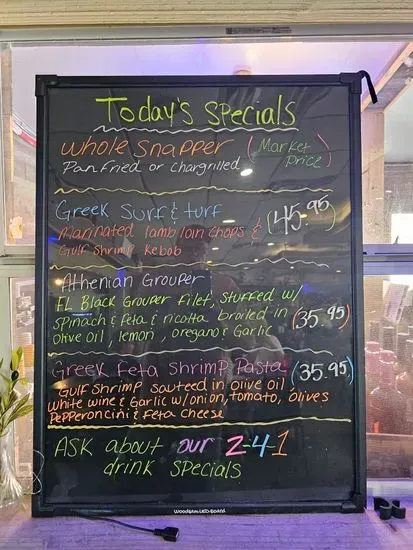 Today's Specials
Whole Snapper (Market
Pan Fried or Chargrilled Price)
Greek Surf & turf (45.95)
Marinated lamb loin chops &
Gulf Shrimp Kebob
Athenian Grouper
EL Black Grouper Filet, stuffed w/
spinach & feta & ricotta broiled in (35.95)
olive oil, lemon, oregano & Garlic
Greek Feta Shrimp Pasta (35.95)
Gulf Shrimp sauteed in olive oil
white wine & Garlic w/onion, tomato, olives
Pepperoncini & Feta Cheese
ASK about our 2-4-1
drink SPecials
WOODSAM LED BOARD